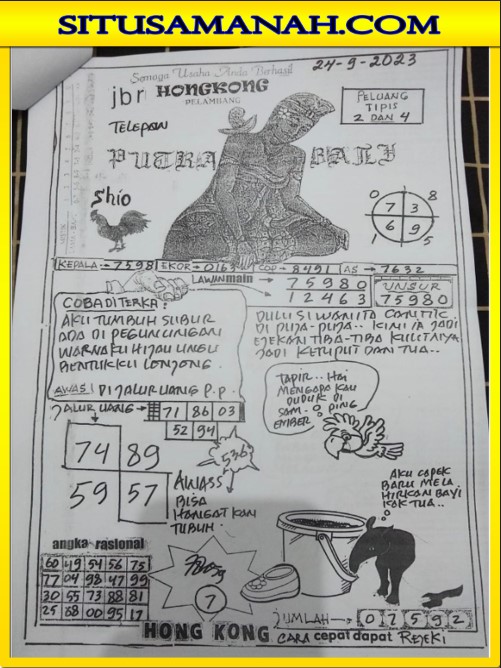 SITUSAMANAH.COM
Semoga Usaha Anda Berhasil
24-9-2023
jbr HONGKONG
PELAMBANG
PELUANG
TIPIS
2 DAN 4
TELEPON
PUTRA BALI
Shio
0 8
7 3
6 9
1 5
KEPALA→7598 EKOR→0163 COP→8491 AS→7632
LAWAN main → 75980
12463
UNSUR
75980
COBA DITERKA:
AKU TUMBUH SUBUR
ADA DI PEGUNUNGAN
WARNAKU HIJAU UNGU
BENTUKKU LONJONG.
AWAS! DIJALUR UANG P.P.
DULU SI WANITA CANTIK
DI PUJA-PUJA.. KINI IA JADI
EJEKAN TIBA-TIBA KULITNYA
JADI KERIPUT DAN TUA..
JALUR UANG→ 71 86 03
52 94
536
74 89
59 57
AWASS
BISA
HANGAT KAN
TUBUH.
TAPIR.. HAI
MENGAPA KAU
DUDUK DI
SAM-PING
EMBER
AKU CAPEK
BARU MELA
HIRKAN BAYI
KAK TUA..
angka rasional
60 49 54 56 75
77 04 98 47 99
30 55 73 88 81
25 88 00 95 17
7
JUMLAH→ 0 7 5 9 2
HONG KONG CARA cepat dapat REJEKI